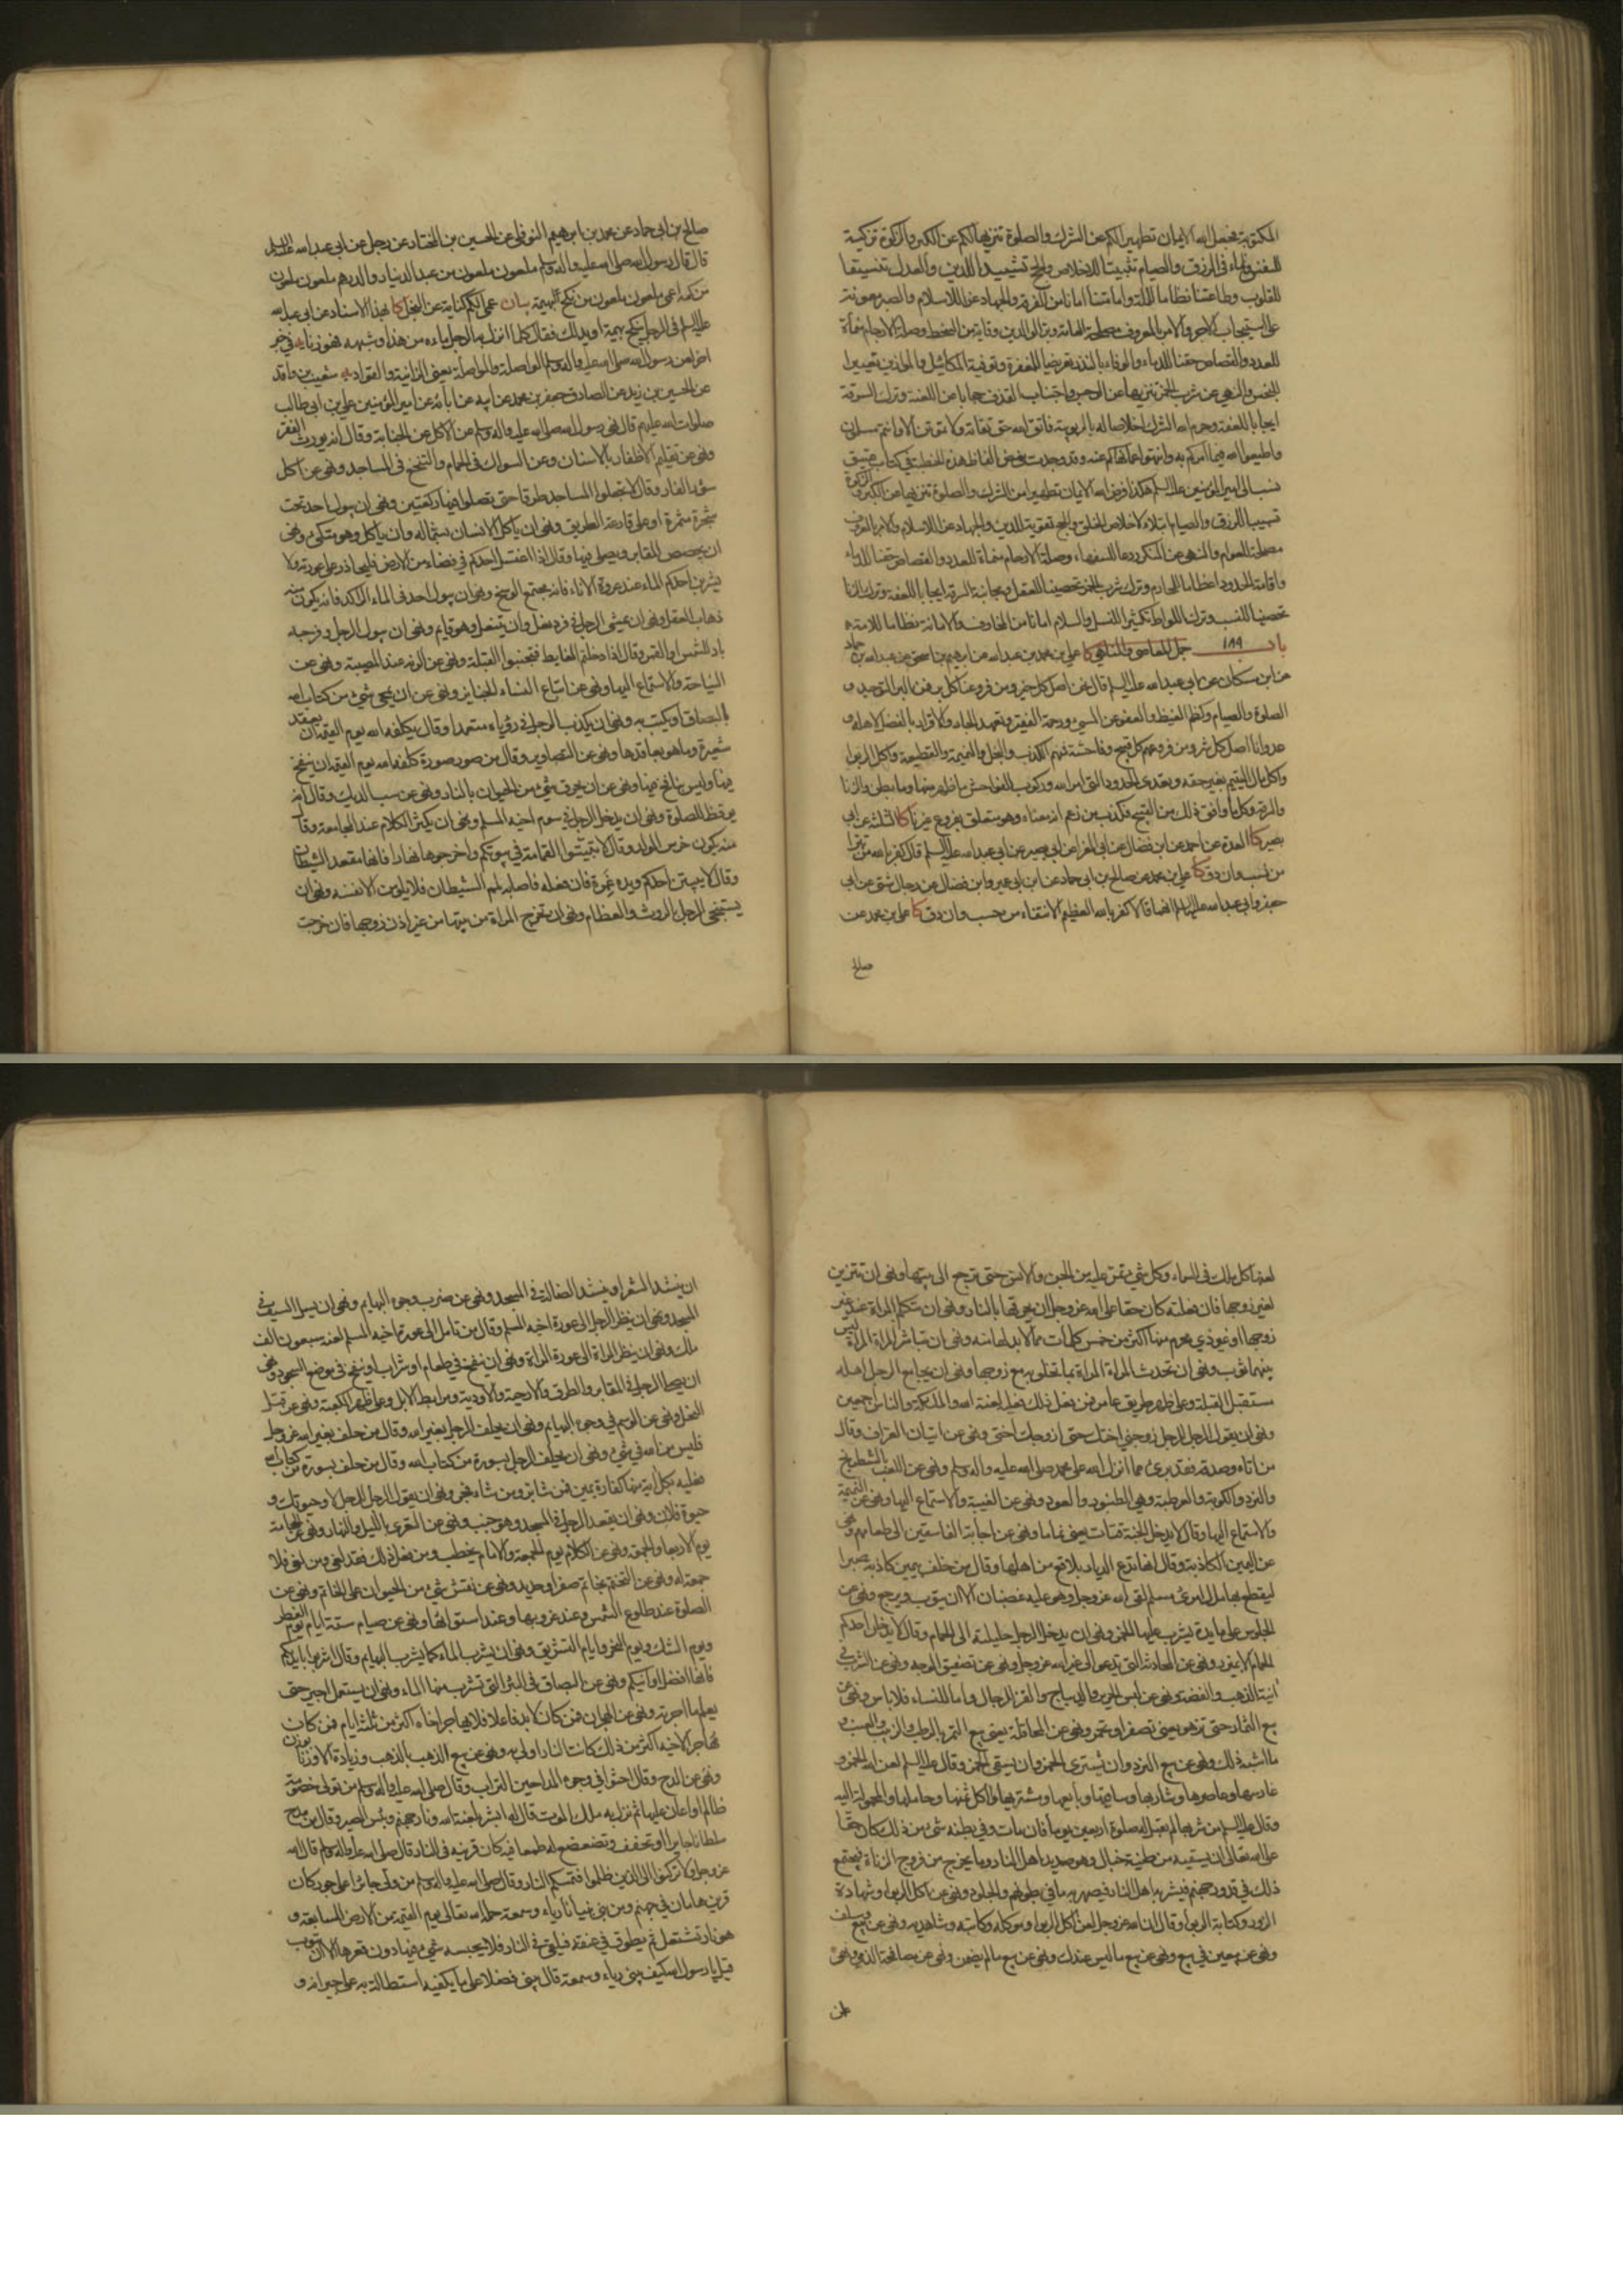 المكتوبة فجعل الله الايمان تطهيرا لكم عن الشرك والصلوة تنزيها لكم عن الكبر والزكوة تزكية
للنفس ونماء في الرزق والصيام تثبيتا للاخلاص والحج تشييدا للدين والعدل تنسيقا
للقلوب وطاعتنا نظاما للملة وامامتنا امانا من الفرقة والجهاد عزا للاسلام والصبر معونة
على استيجاب الاجر والامر بالمعروف مصلحة للعامة وبر الوالدين وقاية من السخط وصلة الارحام منماة
للعدد والقصاص حقنا للدماء والوفاء بالنذر تعريضا للمغفرة وتوفية المكائيل والموازين تغييرا
للبخس والنهي عن شرب الخمر تنزيها عن الرجس واجتناب القذف حجابا عن اللعنة وترك السرقة
ايجابا للعفة وحرم الله الشرك اخلاصا له بالربوبية فاتقوا الله حق تقاته ولا تموتن الا وانتم مسلمون
واطيعوا الله فيما امركم به وانتهوا عما نهاكم عنه وقد وجدت بعض الفاظ هذه الخطبة في كتاب عتيق
نسب الى امير المؤمنين عليه السلم هكذا فرض الله الايمان تطهيرا من الشرك والصلوة تنزيها من الكبر والزكوة
تسبيبا للرزق والصيام ابتلاء لاخلاص الخلق والحج تقوية للدين والجهاد عزا للاسلام والامر بالمعروف
مصلحة للعوام والنهي عن المنكر ردعا للسفهاء وصلة الارحام منماة للعدد والقصاص حقنا للدماء
واقامة الحدود اعظاما للمحارم وترك شرب الخمر تحصينا للعقل ومجانبة السرقة ايجابا للعفة وترك الزنا
تحصينا للنسب وترك اللواط تكثيرا للنسل والسلام امانا من المخاوف والامانة نظاما للامة
باب ١٨٩ جمل المعاصي والمناهي كا علي بن محمد بن عبد الله عن ابرهيم بن اسحق عن عبد الله بن حماد
عن ابن مسكان عن ابي عبد الله عليه السلم قال نحن اصل كل خير ومن فروعنا كل بر فمن البر التوحيد و
الصلوة والصيام وكظم الغيظ والعفو عن المسيء ورحمة الفقير وتعهد الجار والاقرار بالفضل لاهله و
عدونا اصل كل شر ومن فروعهم كل قبيح وفاحشة فمنهم الكذب والبخل والنميمة والقطيعة واكل الربوا
واكل مال اليتيم بغير حقه وتعدي الحدود التي امر الله وركوب الفواحش ما ظهر منها وما بطن والزنا
والسرقة وكل ما وافق ذلك من القبيح فكذب من زعم انه معنا وهو متعلق بفروع غيرنا كا الثلثة عن ابي
بصير كا العدة عن احمد عن ابن فضال عن ابي المغرا عن ابي بصير عن ابي عبد الله عليه السلم قال كفر بالله من تبرأ
من نسب وان دق كا علي بن محمد عن صالح بن ابي حماد عن ابن ابي عمير وابن فضال عن رجال شتى عن ابي
جعفر وابي عبد الله عليهما السلم انهما قالا كفر بالله العظيم الانتفاء من حسب وان دق كا علي بن محمد عن
صالح
صالح بن ابي حماد عن محمد بن ابرهيم النوفلي عن الحسين بن المختار عن رجل عن ابي عبد الله عليه السلم
قال قال رسول الله صلى الله عليه واله وسلم ملعون ملعون من عبد الدينار والدرهم ملعون ملعون
من كمه اعمى ملعون ملعون من نكح بهيمة بيان عمى الكمه كناية عن البخل كا بهذا الاسناد عن ابي عبد الله
عليه السلم في الرجل ينكح بهيمة او يدلك فقال كل ما انزل به الرجل ماءه من هذا وشبهه فهو زنا يه في خبر
اخر لعن رسول الله صلى الله عليه واله وسلم الواصلة والمواصلة يعني الزانية والقوادة يه شعيب بن واقد
عن الحسين بن زيد عن الصادق جعفر بن محمد عن ابيه عن ابائه عن امير المؤمنين علي بن ابي طالب
صلوات الله عليهم قال نهى رسول الله صلى الله عليه واله وسلم عن الاكل عن الجنابة وقال انه يورث الفقر
ونهى عن تقليم الاظفار بالاسنان وعن السواك في الحمام والتنخع في المساجد ونهى عن اكل
سؤر الفار وقال لا تجعلوا المساجد طرقا حتى تصلوا فيها ركعتين ونهى ان يبول احد تحت
شجرة مثمرة او على قارعة الطريق ونهى ان ياكل الانسان بشماله وان ياكل وهو متكئ ونهى
ان يجصص المقابر ويصلى فيها وقال اذا اغتسل احدكم في فضاء من الارض فليحاذر على عورته ولا
يشربن احدكم الماء عند عروة الاناء فانه مجتمع الوسخ ونهى ان يبول احد في الماء الراكد فانه يكون منه
ذهاب العقل ونهى ان يمشي الرجل في فرد نعل وان يتنعل وهو قايم ونهى ان يبول الرجل وفرجه
باد للشمس او القمر وقال اذا دخلتم الغايط فتجنبوا القبلة ونهى عن الرنة عند المصيبة ونهى عن
النياحة والاستماع اليها ونهى عن اتباع النساء للجنايز ونهى عن ان يمحى شيء من كتاب الله
بالبصاق او يكتب به ونهى ان يكذب الرجل في رؤياه متعمدا وقال يكلفه الله يوم القيمة ان يعقد
شعيرة وما هو بعاقدها ونهى عن التصاوير وقال من صور صورة كلفه الله يوم القيمة ان ينفخ
فيها وليس بنافخ فيها ونهى عن ان يحرق شيء من الحيوان بالنار ونهى عن سب الديك وقال انه
يوقظ للصلوة ونهى ان يدخل الرجل في سوم اخيه المسلم ونهى ان يكثر الكلام عند المجامعة وقال
منه يكون خرس الولد وقال لا تبيتوا القمامة في بيوتكم واخرجوها نهارا فانها مقعد الشيطان
وقال لا يبيتن احدكم ويده غمرة فان فعله فاصابه لمم الشيطان فلا يلومن الا نفسه ونهى ان
يستنجي الرجل بالروث والعظام ونهى ان تخرج المراة من بيتها من غير اذن زوجها فان خرجت
لعنها كل ملك في السماء وكل شيء تمر عليه من الجن والانس حتى ترجع الى بيتها ونهى ان تتزين
لغير زوجها فان فعلته كان حقا على الله عز وجل ان يحرقها بالنار ونهى ان تتكلم المراة عند غير
زوجها او غير ذي محرم منها اكثر من خمس كلمات مما لا بد لها منه ونهى ان تباشر المراة المراة ليس
بينهما ثوب ونهى ان تحدث المراة المراة بما تخلو به مع زوجها ونهى ان يجامع الرجل اهله
مستقبل القبلة وعلى ظهر طريق عامر فمن فعل ذلك فعليه لعنة الله والملئكة والناس اجمعين
ونهى ان يقول الرجل للرجل زوجني اختك حتى ازوجك اختي ونهى عن اتيان العراف وقال
من اتاه وصدقه فقد برئ مما انزل الله على محمد صلى الله عليه واله وسلم ونهى عن اللعب بالشطرنج
والنرد والكوبة والعرطبة وهي الطنبور والعود ونهى عن الغيبة والاستماع اليها ونهى عن النميمة
والاستماع اليها وقال لا يدخل الجنة قتات يعني نماما ونهى عن اجابة الفاسقين الى طعامهم ونهى
عن اليمين الكاذبة وقال انها تدع الديار بلاقع من اهلها وقال من حلف بيمين كاذبة صبرا
ليقطع بها مال امرئ مسلم لقي الله عز وجل وهو عليه غضبان الا ان يتوب ويرجع ونهى عن
الجلوس على مايدة يشرب عليها الخمر ونهى ان يدخل الرجل حليلته الى الحمام وقال لا يدخلن احدكم
الحمام الا بميزر ونهى عن المحادثة التي تدعو الى غير الله عز وجل ونهى عن تصفيق الوجه ونهى عن الشرب في
انية الذهب والفضة ونهى عن لبس الحرير والديباج والقز للرجال واما للنساء فلا باس ونهى عن
بيع الثمار حتى تزهو يعني تصفر او تحمر ونهى عن المحاقلة يعني بيع التمر بالرطب والزبيب بالعنب و
ما اشبه ذلك ونهى عن بيع النرد وان تشترى الخمر وان يسقى الخمر وقال عليه السلم لعن الله الخمر و
غارسها وعاصرها وشاربها وساقيها وبايعها ومشتريها واكل ثمنها وحاملها والمحمولة اليه
وقال عليه السلم من شربها لم يقبل له صلوة اربعين يوما فان مات وفي بطنه شيء من ذلك كان حقا
على الله تعالى ان يسقيه من طينة خبال وهو صديد اهل النار وما يخرج من فروج الزناة فيجتمع
ذلك في قدور جهنم فيشربه اهل النار فيصهر به ما في بطونهم والجلود ونهى عن اكل الربوا وشهادة
الزور وكتابة الربوا وقال ان الله عز وجل لعن اكل الربوا وموكله وكاتبه وشاهديه ونهى عن بيع وسلف
ونهى عن بيعين في بيع ونهى عن بيع ما ليس عندك ونهى عن بيع ما لم يضمن ونهى عن مصافحة الذمي ونهى
ان ينشد الشعر او ينشد الضالة في المسجد ونهى عن ضرب وجوه البهايم ونهى ان يسل السيف في
المسجد ونهى ان ينظر الرجل الى عورة اخيه المسلم وقال من تامل الى عورة اخيه المسلم لعنه سبعون الف
ملك ونهى ان ينظر المراة الى عورة المراة ونهى ان ينفخ في طعام او شراب او ينفخ في موضع السجود ونهى
ان يصلي الرجل في المقابر والطرق والارحية والاودية ومرابط الابل وعلى ظهر الكعبة ونهى عن قتل
النحل ونهى عن الوسم في وجوه البهايم ونهى ان يحلف الرجل بغير الله وقال من حلف بغير الله عز وجل
فليس من الله في شيء ونهى ان يحلف الرجل بسورة من كتاب الله وقال من حلف بسورة من كتاب الله
فعليه بكل اية منها كفارة يمين فمن شاء بر ومن شاء فجر ونهى ان يقول الرجل للرجل لا وحيوتك و
حيوة فلان ونهى ان يقعد الرجل في المسجد وهو جنب ونهى عن التعري بالليل والنهار ونهى عن الحجامة
يوم الاربعا والجمعة ونهى عن الكلام يوم الجمعة والامام يخطب ومن فعل ذلك فقد لغى ومن لغى فلا
جمعة له ونهى عن التختم بخاتم صفر او حديد ونهى عن نقش شيء من الحيوان على الخاتم ونهى عن
الصلوة عند طلوع الشمس وعند غروبها وعند استوائها ونهى عن صيام ستة ايام يوم الفطر
ويوم الشك ويوم النحر وايام التشريق ونهى ان يشرب الماء كما يشرب البهايم وقال اشربوا بايديكم
فانها افضل اوانيكم ونهى عن البصاق في البئر التي تشرب منها الماء ونهى ان يستعمل اجير حتى
يعلم ما اجرته ونهى عن الهجران فمن كان لا بد فاعلا فلا يهاجر اخاه اكثر من ثلثة ايام فمن كان
مهاجرا لاخيه اكثر من ذلك كانت النار اولى به ونهى عن بيع الذهب بالذهب وزيادة الا وزنا بوزن
ونهى عن المدح وقال احثوا في وجوه المداحين التراب وقال صلى الله عليه واله وسلم من تولى خصومة
ظالم او اعان عليها ثم نزل به ملك الموت قال له ابشر بلعنة الله ونار جهنم وبئس المصير وقال من مدح
سلطانا جايرا او تخفف وتضعضع له طمعا فيه كان قرينه في النار قال صلى الله عليه واله وسلم قال الله
عز وجل ولا تركنوا الى الذين ظلموا فتمسكم النار وقال صلى الله عليه واله وسلم من ولى جائرا على جور كان
قرين هامان في جهنم ومن بنى بنيانا رياء وسمعة حمله الله تعالى يوم القيمة من الارض السابعة و
هو نار تشتعل ثم يطوق في عنقه فيلقى في النار فلا يحبسه شيء منها دون قعرها الا ان يتوب
قيل يا رسول الله كيف يبني رياء وسمعة قال يبني فضلا على ما يكفيه استطالة به على جيرانه و